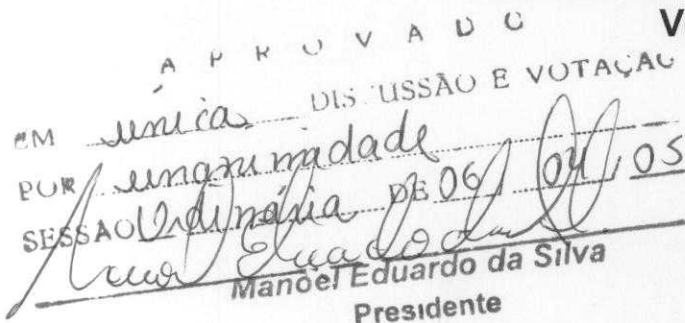 V
APROVADO
EM única DISCUSSÃO E VOTAÇÃO
POR unanimidade
SESSÃO Ordinária DE 06 / 04 / 05
Manoel Eduardo da Silva
Presidente